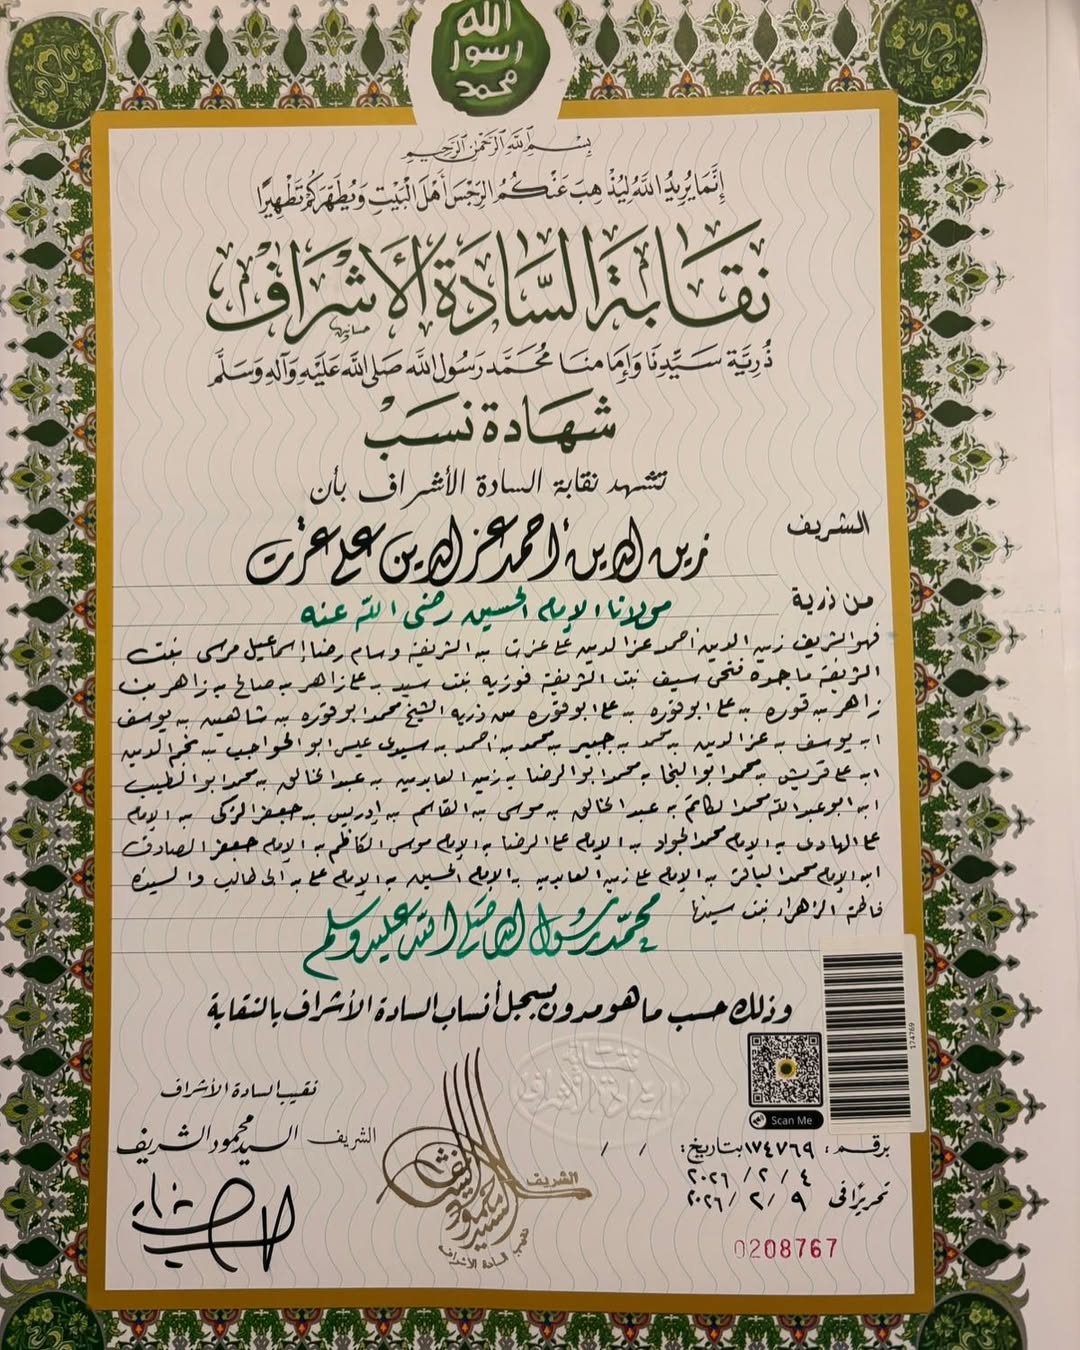 الله
رسول
محمد
بسم الله الرحمن الرحيم
إنما يريد الله ليذهب عنكم الرجس أهل البيت ويطهركم تطهيرا
نقابة السادة الأشراف
ذرية سيدنا وإمامنا محمد رسول الله صلى الله عليه وآله وسلم
شهادة نسب
تشهد نقابة السادة الأشراف بأن
الشريف زين الدين أحمد عز الدين على عزت
من ذرية مولانا الإمام الحسين رضى الله عنه
فهو الشريف زين الدين أحمد عز الدين على عزت به الشريفة وسام رضا إسماعيل مرسى بنت
الشريفة ماجدة فتحى سيف بنت الشريفة فوزية بنت سيد به على زاهر به صالح به زاهر به
زاهر به قوره به على ابوقوره به على ابوقوره من ذرية الشيخ محمد ابوقوره به شاهين به يوسف
ابه يوسف به عز الدين به محمد به جبير به محمد به أحمد به سيدى عيسى ابو الحواجب به نجم الدين
ابه على قريش به محمد ابو النجا به محمد ابو الرضا به زين العابدين به عبد الخالق به محمد ابو الطيب
ابه ابو عبد الله محمد الكاتم به عبد الخالق به موسى به القاسم به إدريس به جعفر الزكى به الإمام
على الهادى به الإمام محمد الجواد به الإمام على الرضا به الإمام موسى الكاظم به الإمام جعفر الصادق
ابه الإمام محمد الباقر به الإمام على زين العابدين به الإمام الحسين به الإمام على به ابى طالب والسيدة
فاطمة الزهراء بنت سيدنا محمد رسول الله صلى الله عليه وسلم
وذلك حسب ما هو مدون بسجل أنساب السادة الأشراف بالنقابة
174769
نقابة
السادة الأشراف
Scan Me
نقيب السادة الأشراف
الشريف السيد محمود الشريف
الشريف
السيد محمود
نقيب السادة الأشراف
برقم: ١٧٤٧٦٩ بتاريخ: / /
٢٠٢٦ / ٢ / ٤
تحريرًا فى ٩ / ٢ / ٢٠٢٦
0208767